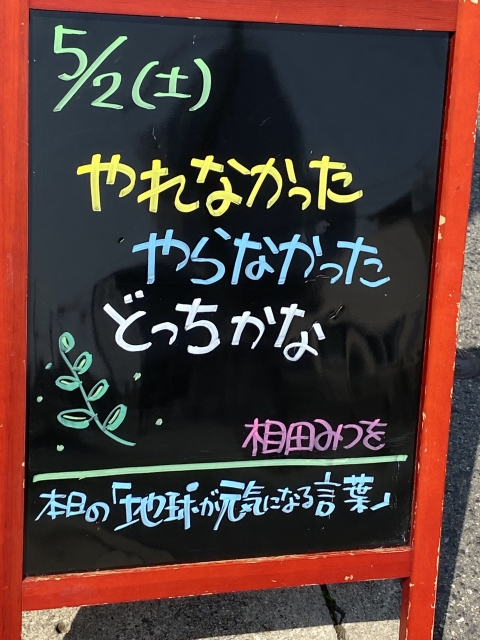 5/2(土)
やれなかった
やらなかった
どっちかな
相田みつを
本日の「地球が元気になる言葉」